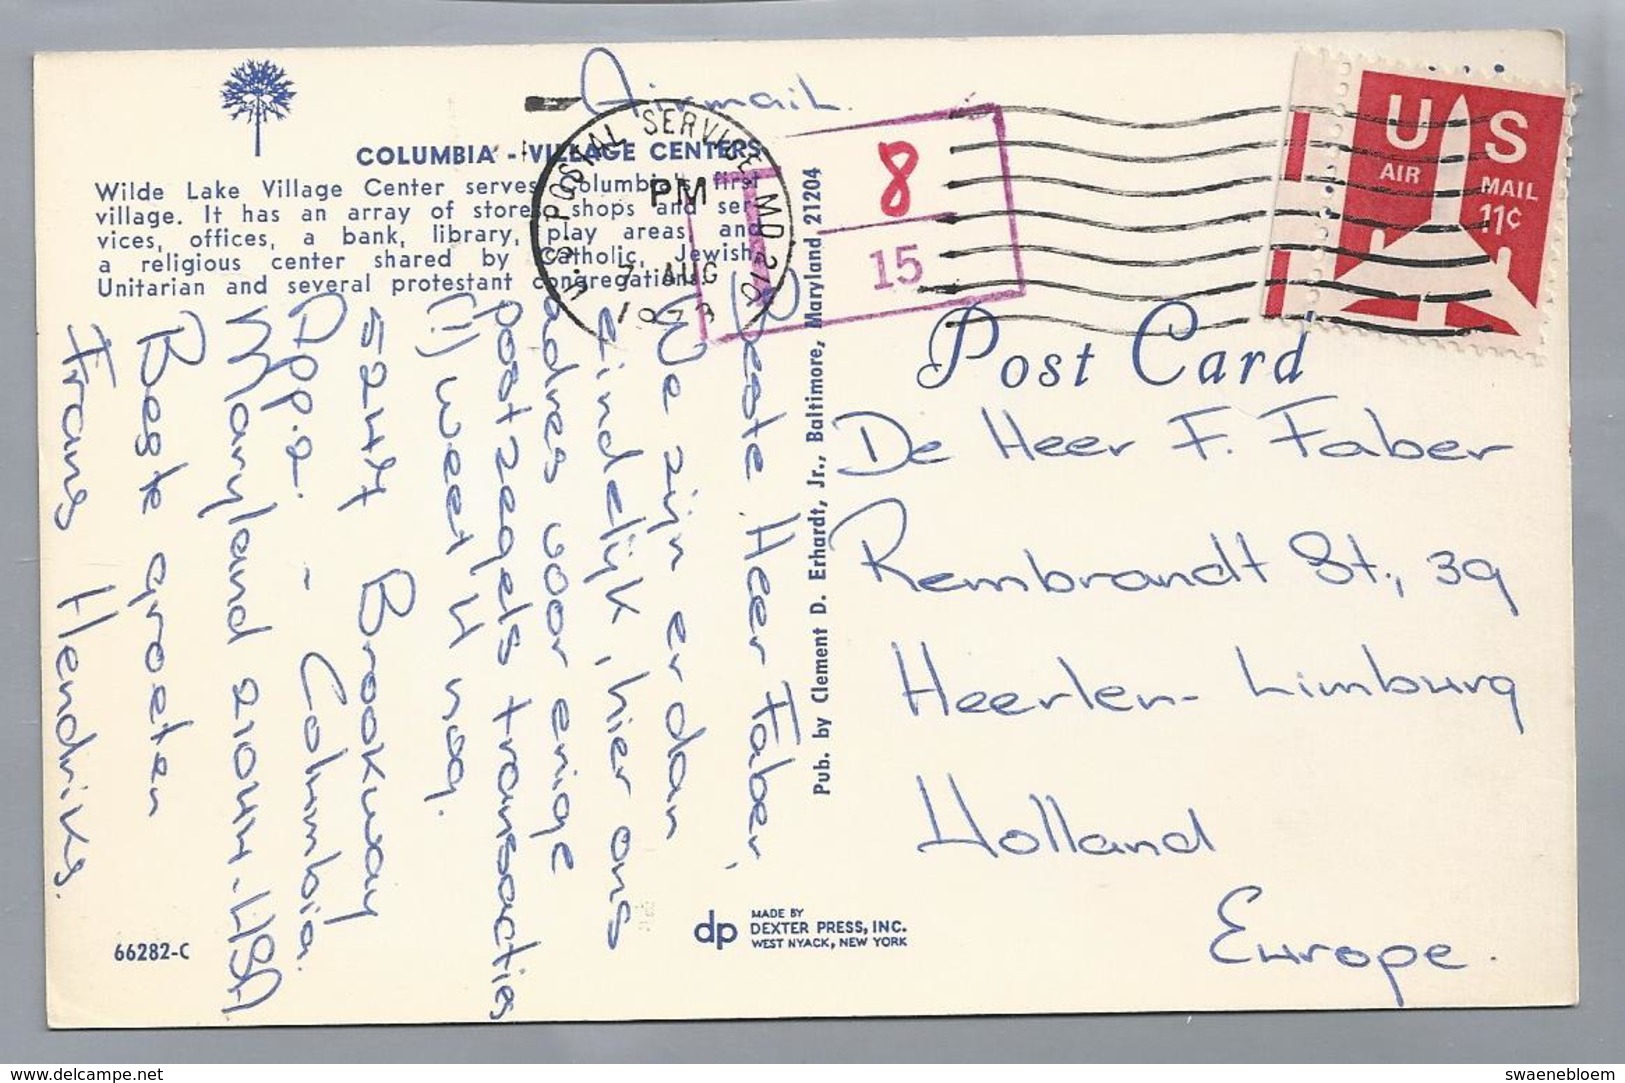 Airmail.
COLUMBIA - VILLAGE CENTERS
Wilde Lake Village Center serves Columbia's first
village. It has an array of stores, shops and ser-
vices, offices, a bank, library, play areas and
a religious center shared by Catholic, Jewish,
Unitarian and several protestant congregations.
U.S. POSTAL SERVICE MD 210
PM
7 AUG
1973
8
15
US
AIR
MAIL
11¢
Post Card
De Heer F. Faber
Rembrandt St., 39
Heerlen - Limburg
Holland
Europe.
Beste Heer Faber,
We zijn er dan
eindelijk, hier ons
adres voor enige
postzegels transacties
(!) weet U nog.
5247 Brookway
App. 2. - Columbia.
Maryland 21044 - USA
Beste groeten
Frans Hendriks.
Pub. by Clement D. Erhardt, Jr., Baltimore, Maryland 21204
66282-C
dp
MADE BY
DEXTER PRESS, INC.
WEST NYACK, NEW YORK
www.delcampe.net
swaenebloem